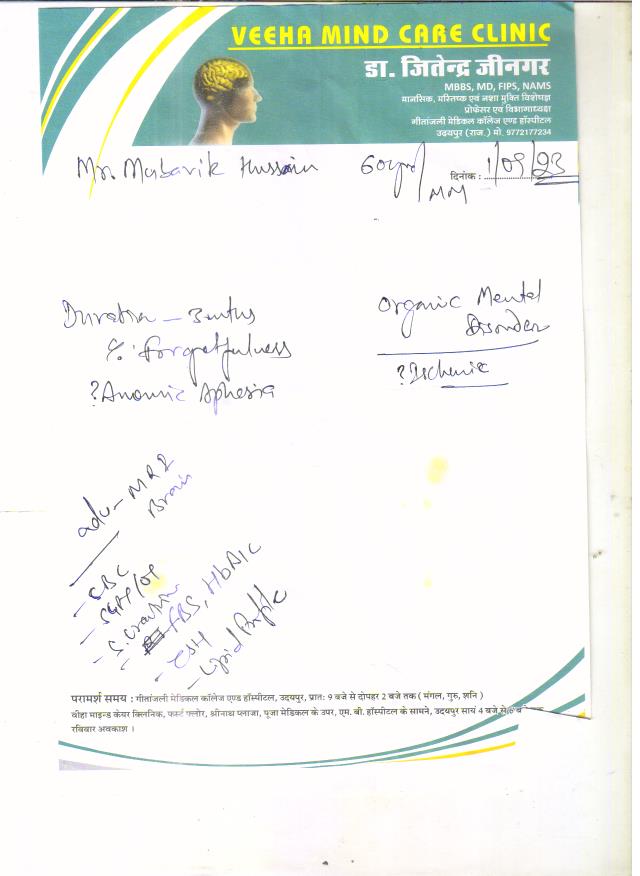 VEEHA MIND CARE CLINIC
डा. जितेन्द्र जीनगर
MBBS, MD, FIPS, NAMS
मानसिक, मस्तिष्क एवं नशा मुक्ति विशेषज्ञ
प्रोफेसर एवं विभागाध्यक्ष
गीतांजली मेडिकल कॉलेज एण्ड हॉस्पीटल
उदयपुर (राज.) मो. 9772177234
Mr. Mubarik Hussain 60yrs/ दिनांक : 1/09/23
Duration - 3mths
c/o Forgetfulness
?Anomic Aphesia
Organic Mental
Disorder
?Ischemic
adv- MRI
Brain
- CBC
- SGPT/OT
- S. Creatinine
- FBS, HbA1C
- TSH
- Lipid Profile
परामर्श समय : गीतांजली मेडिकल कॉलेज एण्ड हॉस्पीटल, उदयपुर, प्रातः 9 बजे से दोपहर 2 बजे तक ( मंगल, गुरु, शनि )
वीहा माइन्ड केयर क्लिनिक, फर्स्ट फ्लोर, श्रीनाथ प्लाजा, पूजा मेडिकल के उपर, एम. बी. हॉस्पीटल के सामने, उदयपुर सायं 4 बजे से
रविवार अवकाश ।